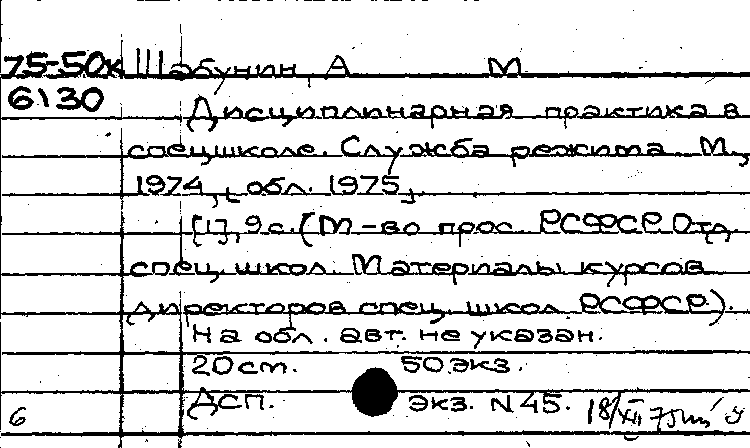 75-50к Шабунин, А М
6130 Дисциплинарная практика в
спецшколе. Служба режима М.,
1974, [обл. 1975].
[1], 9 с. (М-во прос. РСФСР. Отд.
спец. школ. Материалы курсов
директоров спец. школ РСФСР).
На обл. авт. не указан.
20 см. 50 экз.
ДСП. экз. N 45. 18/XII 75
6